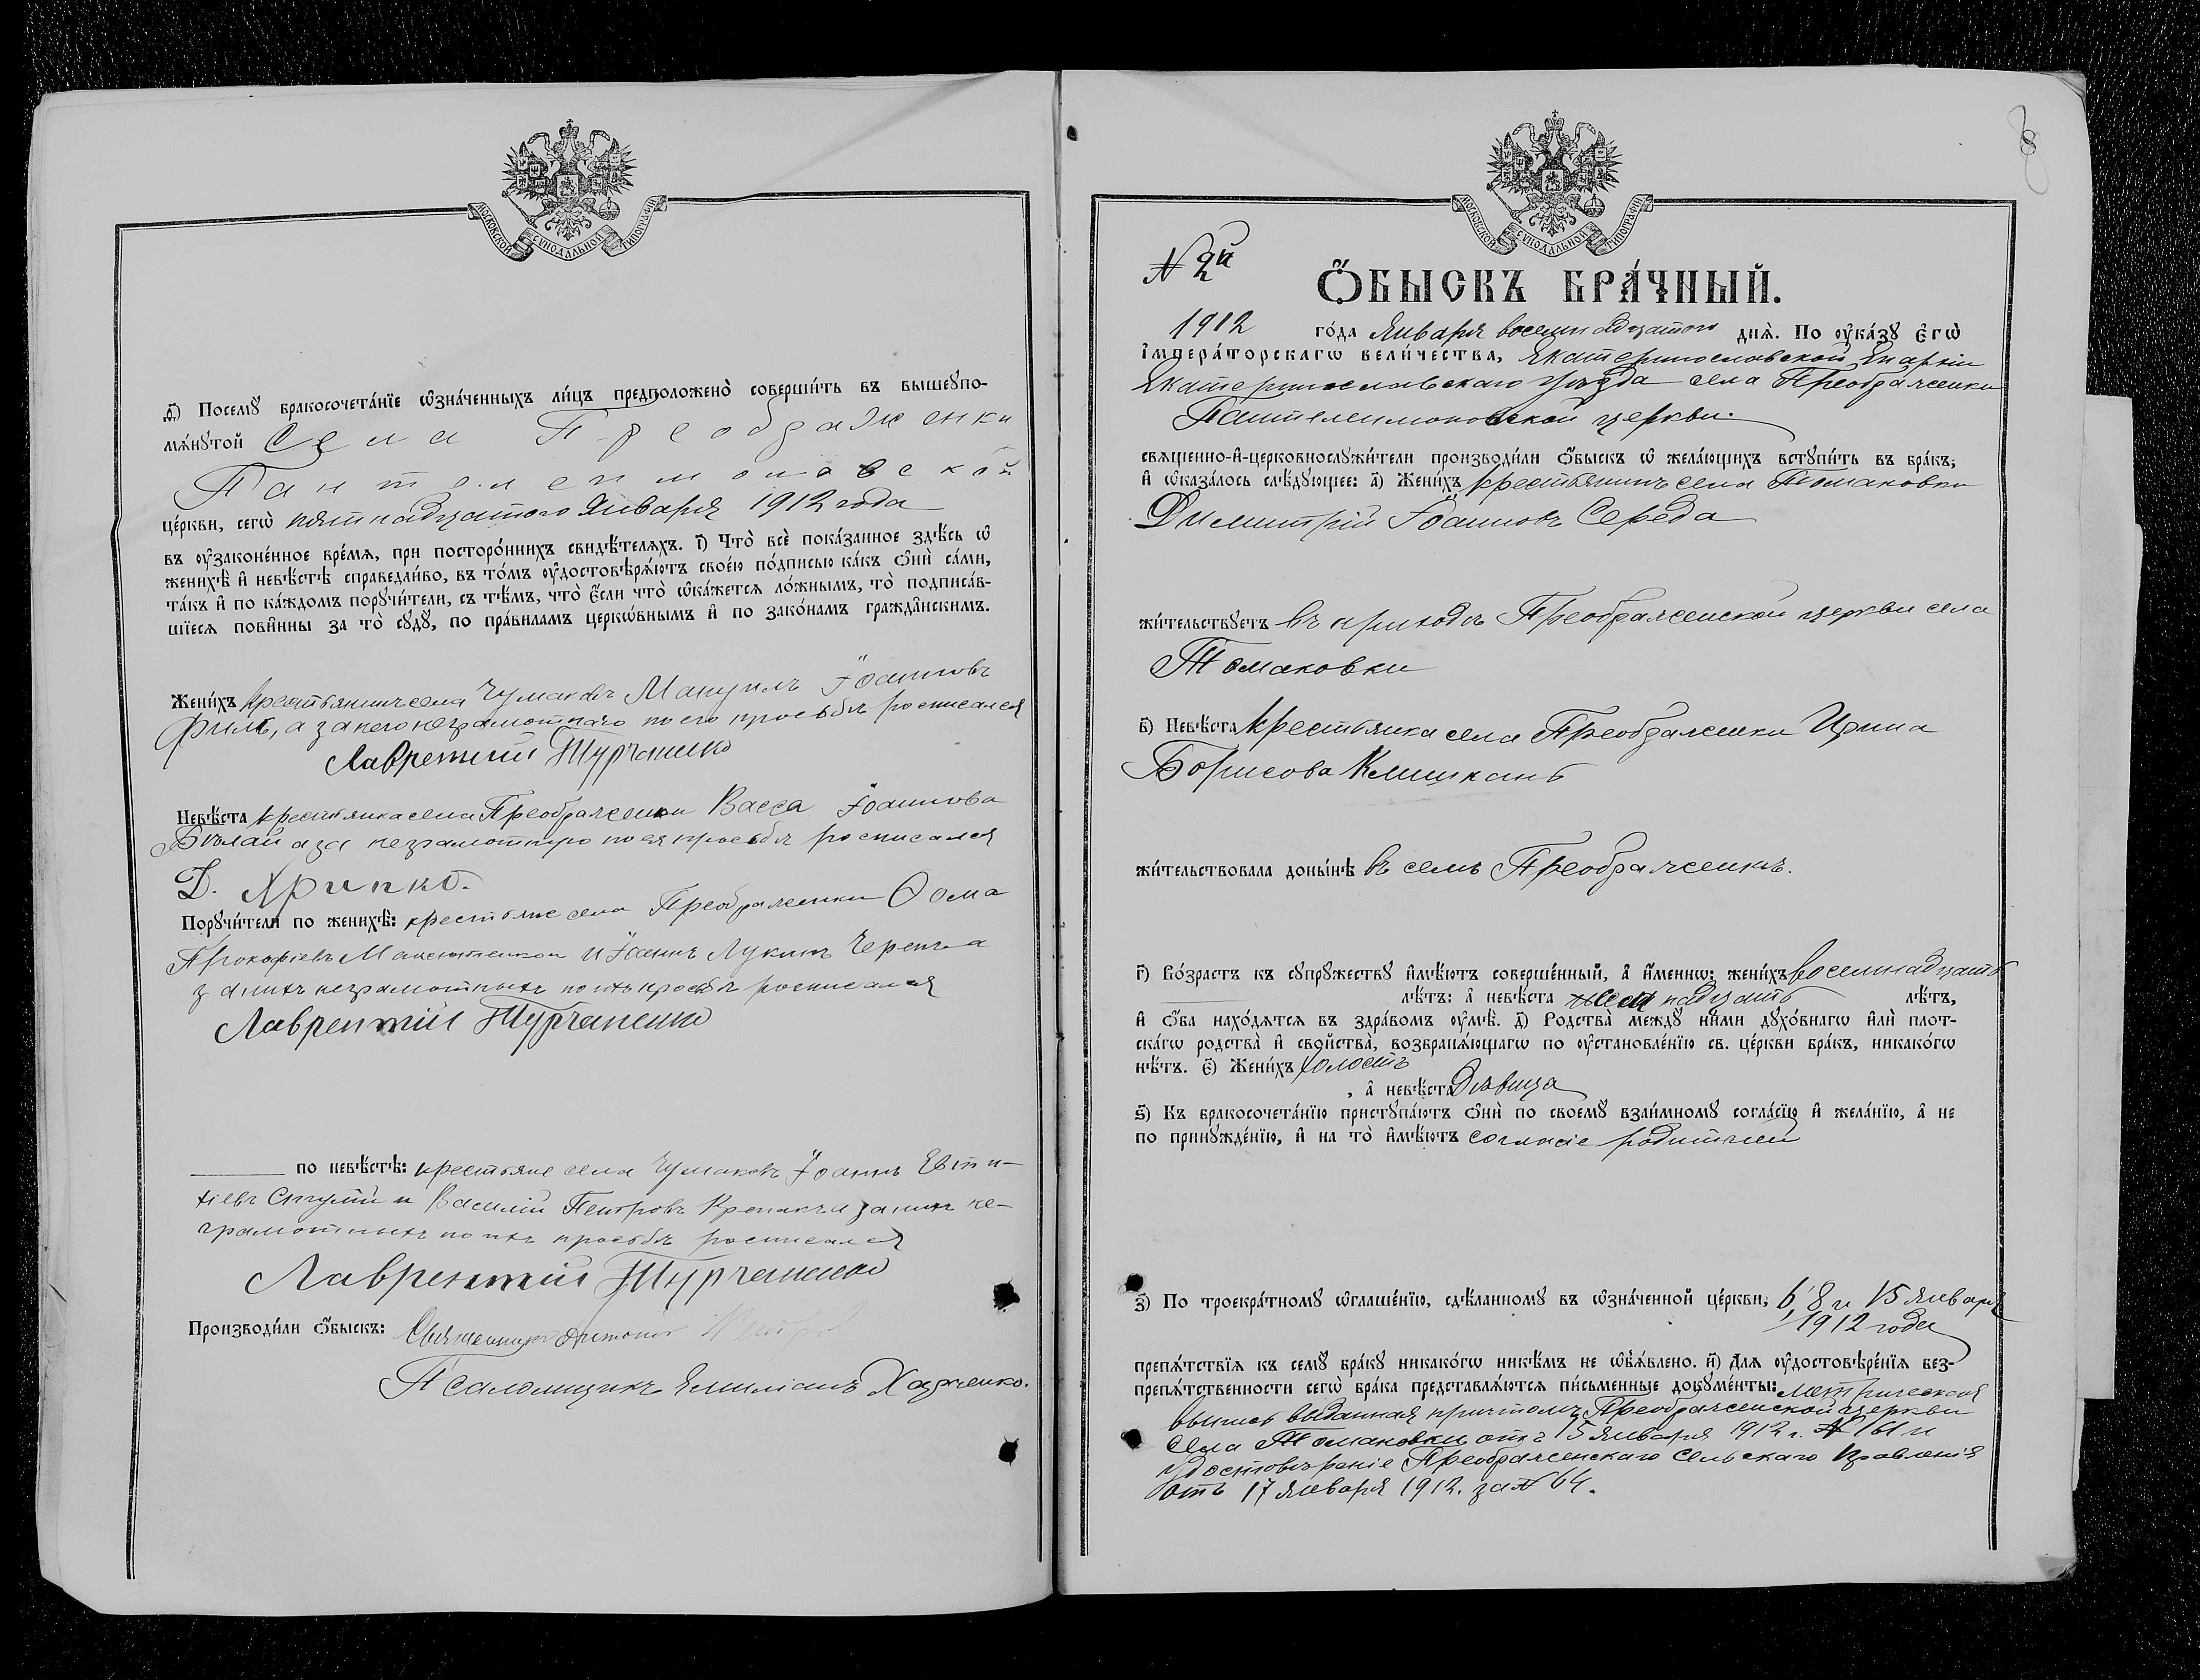 МОСКОВСКОЙ СѴНОДАЛЬНОЙ ТИПОГРАФІИ
д҃) Посемꙋ бракосочета́нїе ѡ҆зна́ченныхъ ли́цъ предположено̀ соверши́ть въ вышеꙋпо-
мѧ́нꙋтой Села Преображенки
Пантелеимоновской
це́ркви, сегѡ̀ пятнадцатого Января 1912 года
въ ᲂу҆законе́нное вре́мѧ, при посторо́ннихъ свидѣ́телѧхъ. і҃) Что̀ всѐ пока́занное здѣ́сь ѡ҆
женихѣ̀ и҆ невѣ́стѣ справедли́во, въ то́мъ ᲂу҆достовѣрѧ́ютъ свое́ю по́дписью ка́къ ѻ҆нѝ са́ми,
та́къ и҆ по ка́ждомъ порꙋчи́тели, съ тѣ́мъ, что̀ є҆́сли что̀ ѡ҆ка́жетсѧ ло́жнымъ, то̀ подписа́в-
шїесѧ пови́нны за то̀ сꙋдꙋ̀, по пра́виламъ церко́внымъ и҆ по зако́намъ гражда́нскимъ.
Жени́хъ крестьянинъ села Чумаковъ Мануилъ Іоанновъ
Филь, а за него неграмотнаго по его просьбѣ росписался
Лаврентий Турчаненко
Невѣ́ста крестьянка села Преображенки Васса Іоаннова
Бѣлай а за неграмотную по ея просьбѣ росписался
Д. Хрипко.
Порꙋчи́тели по женихѣ̀: крестьяне села Преображенки Ѳома
Прокофіевъ и Іоаннъ Лукинъ
за нихъ неграмотныхъ по ихъ просьбѣ росписался
Лаврентий Турчаненко
по невѣ́стѣ: крестьяне села Чумаковъ Іоаннъ Евти-
хіевъ и Василій Петровъ а за нихъ не-
грамотныхъ по ихъ просьбѣ росписался
Лаврентий Турчаненко
Производи́ли ѻ҆́быскъ: Священникъ Антоній
Псаломщикъ Емиліанъ Харченко.
8
МОСКОВСКОЙ СѴНОДАЛЬНОЙ ТИПОГРАФІИ
№ 2й
Ѻ҆́БЫСКЪ БРА́ЧНЫЙ.
1912 го́да Января восемнадцатого днѧ̀. По ᲂу҆ка́зꙋ є҆гѡ̀
і҆мпера́торскагѡ вели́чества, Екатеринославской Епархіи
Екатеринославскаго уѣзда села Преображенки
Пантелеимоновской церкви.
свѧще́нно-и҆-церковнослꙋжи́тели производи́ли ѻ҆́быскъ ѡ҆ жела́ющихъ встꙋпи́ть въ бра́къ;
и҆ ѡ҆каза́лось слѣ́дꙋющее: а҃) Жени́хъ крестьянинъ села Томаковки
Димитрій Іоанновъ Середа
жи́тельствꙋетъ въ приходѣ Преображенской церкви села
Томаковки
в҃) Невѣ́ста крестьянка села Преображенки Ирина
Борисова Клишкань
жи́тельствовала доны́нѣ въ селѣ Преображенкѣ.
г҃) Во́зрастъ къ сꙋпрꙋ́жествꙋ и҆мѣ́ютъ соверше́нный, а҆ и҆́меннѡ: жени́хъ восемнадцать
лѣ́тъ: а҆ невѣ́ста надцать лѣ́тъ,
и҆ ѻ҆́ба нахо́дѧтсѧ въ здра́вомъ ᲂу҆мѣ̀. д҃) Родства̀ междꙋ̀ ни́ми дꙋхо́внагѡ и҆лѝ плот-
ска́гѡ родства̀ и҆ сво́йства, возбранѧ́ющагѡ по ᲂу҆становле́нїю св. це́ркви бра́къ, никако́гѡ
нѣ́тъ. є҃) Жени́хъ холостъ
, а҆ невѣ́ста дѣвица
ѕ҃) Къ бракосочета́нїю пристꙋпа́ютъ ѻ҆нѝ по своемꙋ̀ взаи́мномꙋ согла́сїю и҆ жела́нїю, а҆ не
по принꙋжде́нїю, и҆ на то̀ и҆мѣ́ютъ согласіе родителей
з҃) По троекра́тномꙋ ѡ҆глаше́нїю, сдѣ́ланномꙋ въ ѡ҆зна́ченной це́ркви, 6, 8 и 15 января
1912 года
препѧ́тствїѧ къ семꙋ̀ бра́кꙋ никако́гѡ никѣ́мъ не ѡ҆б̾ѧ́влено. и҃) Длѧ̀ ᲂу҆достовѣре́нїѧ без-
препѧ́тственности сегѡ̀ бра́ка представлѧ́ютсѧ пи́сьменные докꙋме́нты: метрическая
выпись выданная причтомъ Преображенской церкви
села Томаковки отъ 15 января 1912 г. № 161 и
удостовѣреніе Преображенскаго Сельскаго Правленія
отъ 17 января 1912. за № 64.